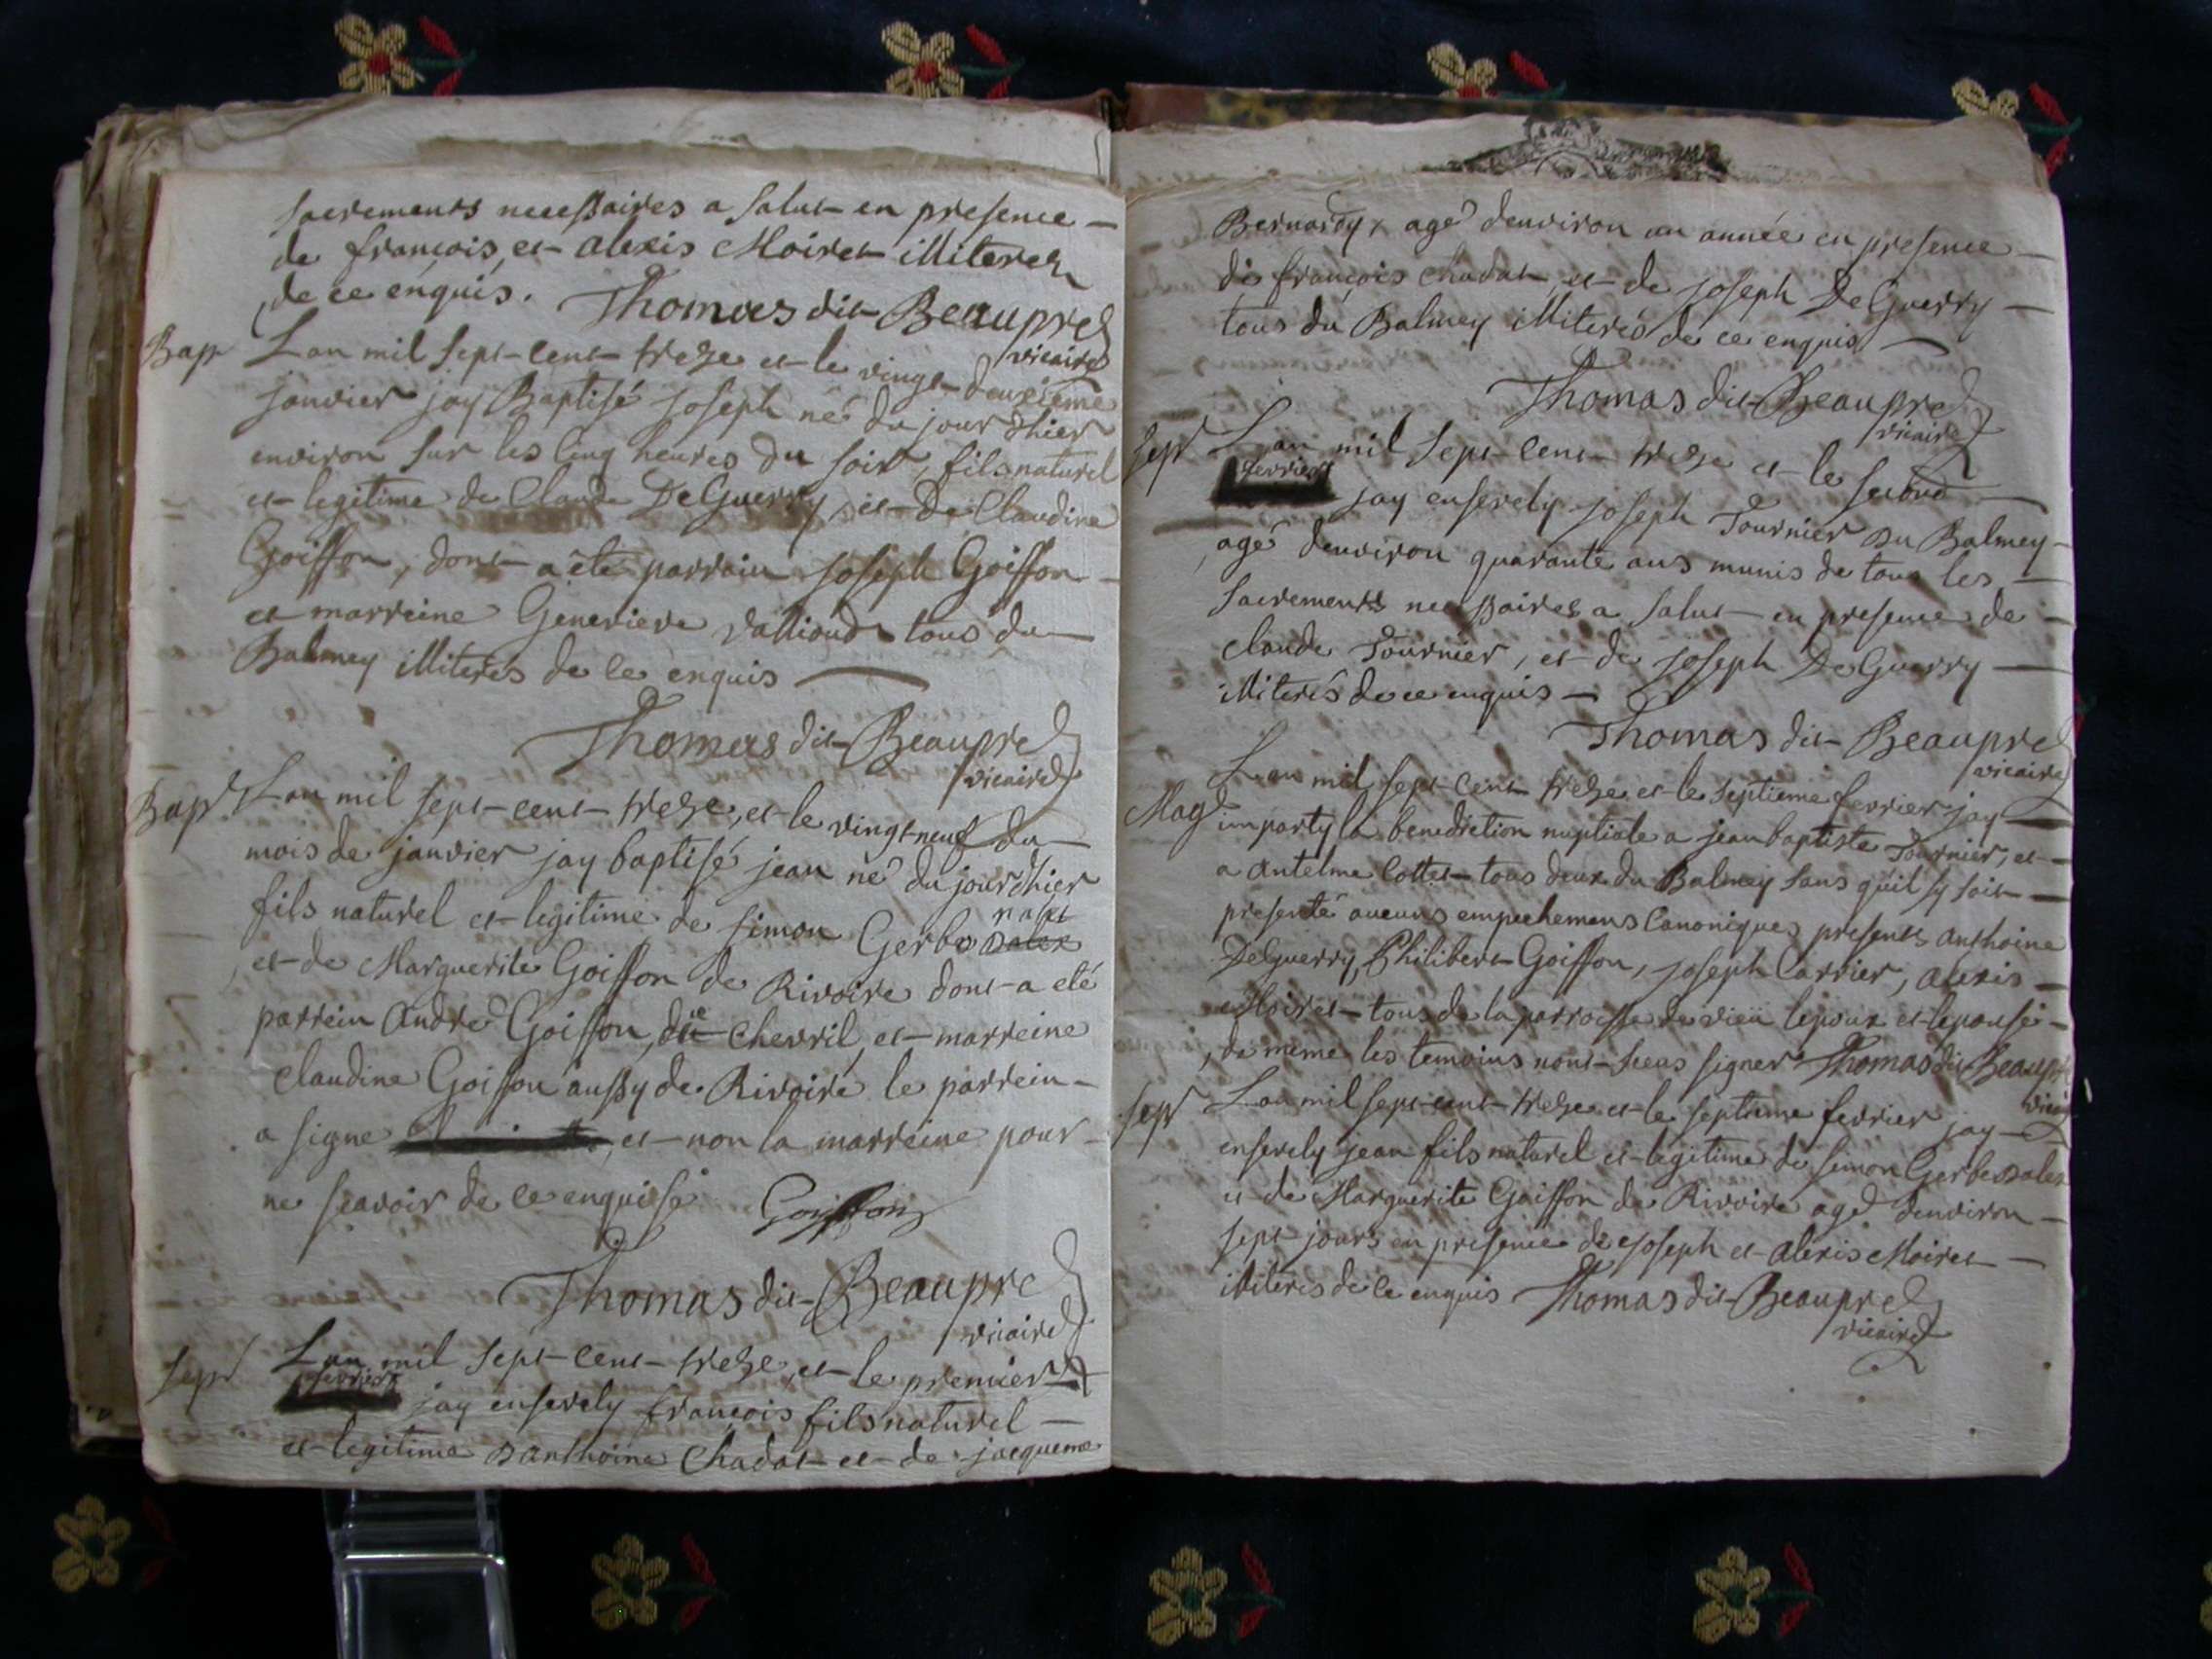 sacrements necessaires a salut en presence
de françois, et alexis Moiret illiteres
de ce enquis. Thomas dit Beaupre
vicaire
Bap
Lan mil sept cent treze et le vingt deuxieme
janvier jay Baptisé joseph né du jour dhier
environ sur les cinq heures du soir, fils naturel
et legitime de Claude DeGuerry, et De Claudine
Goiffon, dont a èté parrain joseph Goiffon
et marreine Genevieve Vallioud tous du
Balmey illiterés de ce enquis
Thomas dit Beaupre
vicaire
Bapt
Lan mil sept cent treze, et le vingt neuf du
mois de janvier jay baptisé jean né du jour dhier
fils naturel et legitime de simon Gerbe
et de Marguerite Goiffon de Rivoire dont a eté
parrein André Goiffon, de Chevril, et marreine
claudine Goiffon aussy de Rivoire le parrein
a signe et non la marreine pour
ne scavoir de ce enquise Goiffon
Thomas dit Beaupre
vicaire
Sepr
Lan mil sept cent treze, et le premier
fevrier jay enserely françois fils naturel
et legitime Danthoine Chadat et de jacqueme
Bernardy, agé denviron un année en presence
de françois chadat, et de joseph DeGuerry
tous du Balmey illiterés de ce enquis
Thomas dit Beaupre
vicaire
Sepr
Lan mil sept cent treze et le second
fevrier jay enserely joseph Tournier Du Balmey
agé denviron quarante ans munis de tous les
sacrements necessaires a salut en presence de
claude Tournier, et de joseph DeGuerry
illiterés de ce enquis
Thomas dit Beaupre
vicaire
Mag
Lan mil sept cent treze et le septieme fevrier jay
imparty la benediction nuptiale a jean baptiste Tournier, et
a antelme Cottet tous deux du Balmey sans quil sy soit
presenté aucuns empechemens Canoniques presents anthoine
DeGuerry, Philibert Goiffon, joseph Carrier, alexis
Moiret tous de la parroisse de vieu lepoux et lepousé
de meme les temoins nont sceus signer Thomas dit Beaupre
vicaire
Sepr
Lan mil sept cent treze et le septieme fevrier jay
enserely jean fils naturel et legitime de simon Gerbe
et de Marguerite Goiffon de Rivoire agé denviron
sept jours en presence de joseph et alexis Moiret
illiterés de ce enquis Thomas dit Beaupre
vicaire